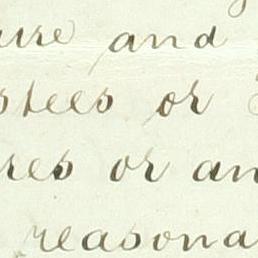 and
stees or
res or an
reasona